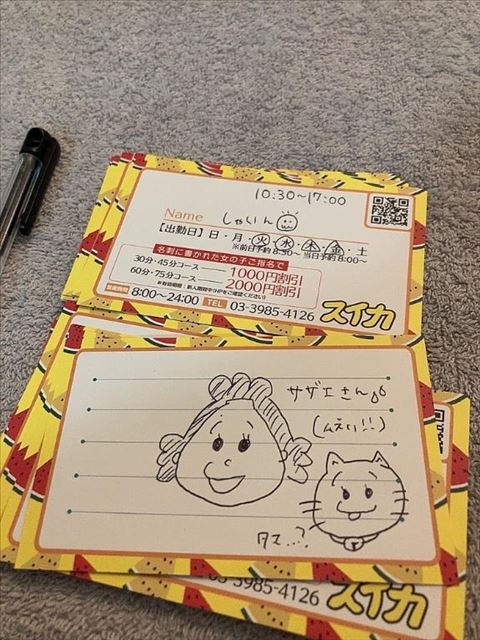 10:30~17:00
Name しゃいん
【出勤日】日・月・火・水・木・金・土
※前日予約 8:30~ 当日予約 8:00~
名刺に書かれた女の子ご指名で
30分・45分コース 1000円割引
60分・75分コース 2000円割引
営業時間 8:00~24:00 TEL 03-3985-4126 スイカ
サザエさん
(ムズい!!)
タマ…?
03-3985-4126 スイカ